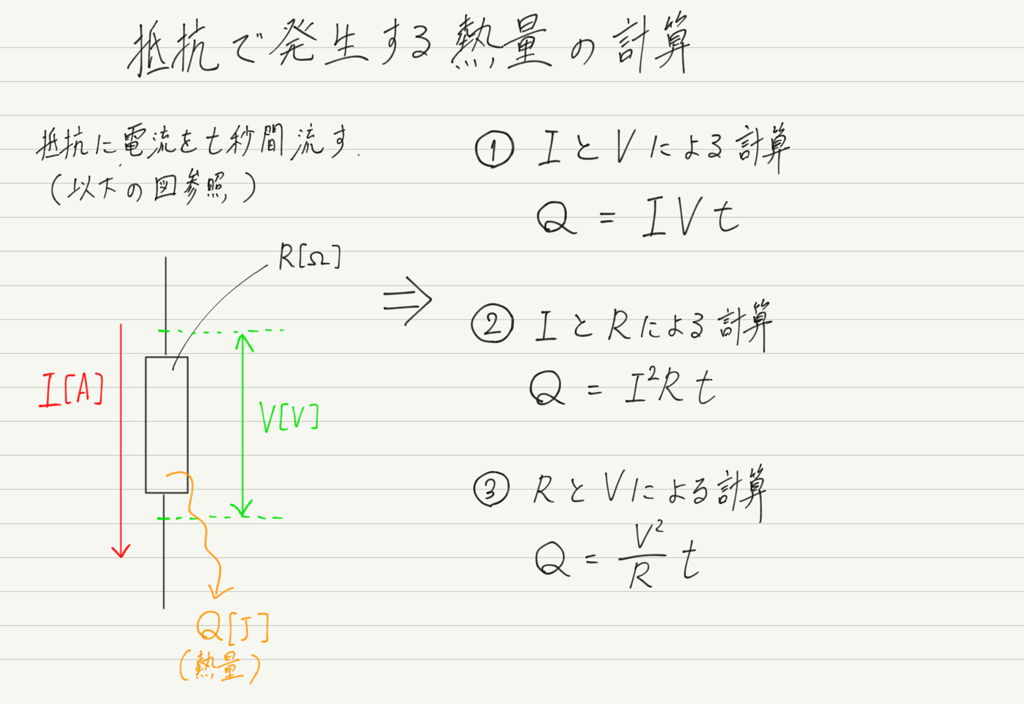 抵抗で発生する熱量の計算
抵抗に電流をt秒間流す.
(以下の図参照)
R[Ω]
I[A]
V[V]
Q[J]
(熱量)
⇒
① IとVによる計算
Q = IVt
② IとRによる計算
Q = I²Rt
③ RとVによる計算
Q = V²/R t